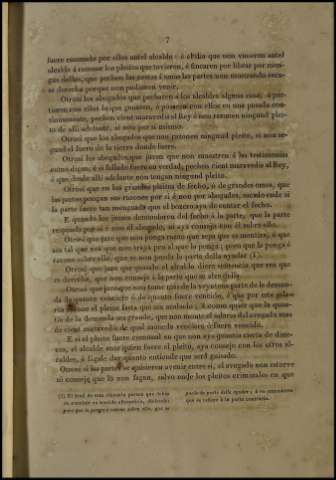 7
fuere emendo por ellos antel alcalde: é el dia que non vinieren antel
alcalde á razonar los pleitos que tovieren, é fincaren por librar por men-
gua dellos, que pechen las costas á amas las partes non mostrando escu-
sa derecha porque non podieron venir.
Otrosi los abogados que pecharen á los alcaldes alguna cosa, ó por-
taren con ellos lo que ganaren, ó posieren con ellos en una posada con-
tinuamente, pechen cient maravedis al Rey é non razonen ningund plei-
to de alli adelante, si non por si mismo.
Otrosi que los abogados que non razonen ningund pleito, si non se-
gund el fuero de la tierra donde fuere.
Otrosi los abogados que juren que non muestren á los testimonios
como digan, é si fallado fuere en verdad, pechen cient maravedis al Rey,
é que dende alli adelante non tengan ningund pleito.
Otrosi que en los grandes pleitos de fecho, ó de grandes cosas, que
las partes pongan sus razones por si é non por abogados, sacado ende si
la parte fuere tan menguada que el home haya de contar el fecho.
E quando los jueces demandaren del fecho á la parte, que la parte
responda por si é non el abogado, ni aya consejo con él sobre ello.
Otrosi que jure que non ponga razon que sepa que es mentira, ó que
es tal que vea que non traya pro al que la ponga; pero que la ponga é
razone sobre ella, que se non pueda la parte della ayudar (1).
Otrosi que jure que quando el alcalde diere sentencia que vea que
es derecha, que non conseje á la parte que se alce della.
Otrosi que jure que non tome mas de la veyntena parte de la deman-
da de quanto venciere ó de quanto fuere vencido, é que por este gala-
rdone el pleito fasta que sea acabado; á como quier que la quan-
tia de la demanda sea grande, que non monte el salario del avogado mas
de cient maravedis de qual manera venciere ó fuere vencido.
E si el pleito fuere criminal en que non aya quantia cierta de dine-
ros, el alcalde ante quien fuere el pleito, aya consejo con los otros al-
caldes, é fagale dar quanto entiende que será guisado.
Otrosi si las partes se quisieren avenir entre si, el avogado non estorve
ni conseje que lo non fagan, salvo ende los pleitos criminales en que
(1) El final de esta cláusula parece que debia
pero que la ponga é razone sobre ella, que se
pueda la parte della ayudar; é es
que se refiere á la parte contraria.